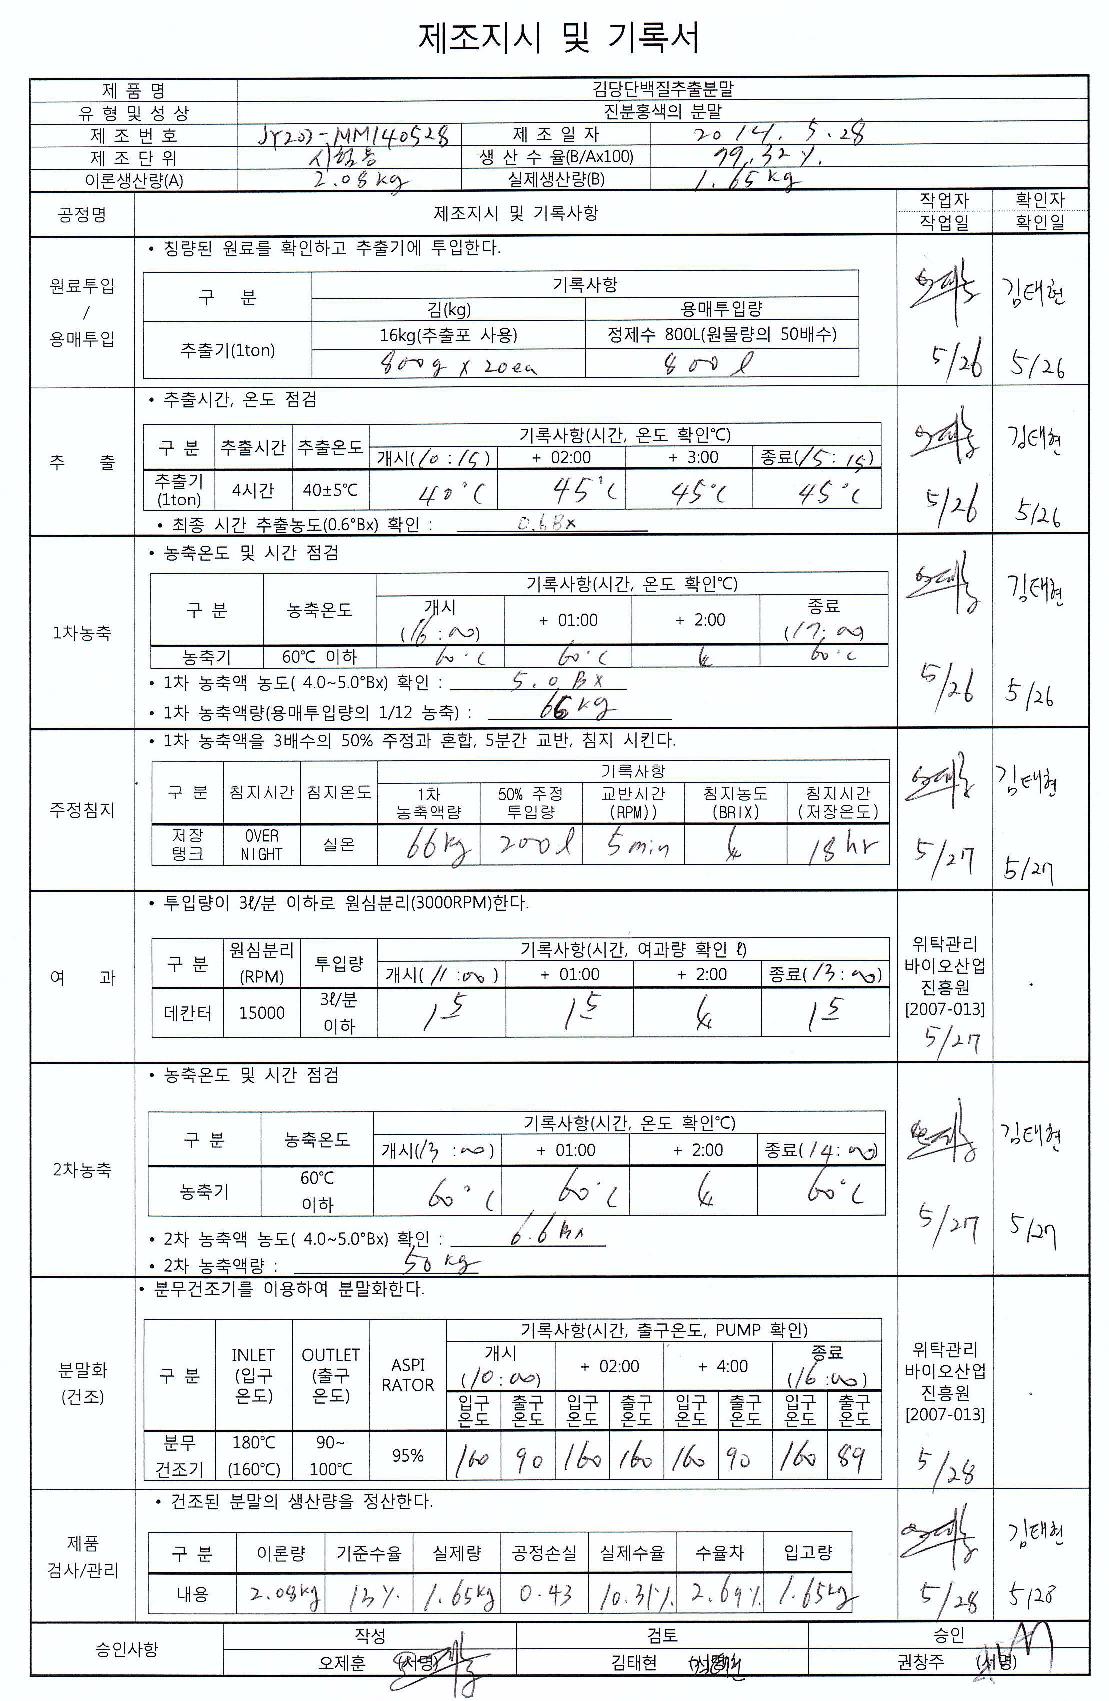 제조지시 및 기록서
제 품 명 김당단백질추출분말
유 형 및 성 상 진분홍색의 분말
제 조 번 호 JY202-MM140528 제 조 일 자 2014. 5. 28
제 조 단 위 시험용 생 산 수 율(B/Ax100) 79.32%
이론생산량(A) 2.08kg 실제생산량(B) 1.65kg
공정명 제조지시 및 기록사항 작업자 작업일 확인자 확인일
원료투입 / 용매투입
• 칭량된 원료를 확인하고 추출기에 투입한다.
구 분 기록사항
김(kg) 용매투입량
추출기(1ton) 16kg(추출포 사용) 정제수 800L(원물량의 50배수)
800g x 20ea 800l
김태현
5/26 5/26
추 출
• 추출시간, 온도 점검
구 분 추출시간 추출온도 기록사항(시간, 온도 확인℃)
개시(10:15) + 02:00 + 3:00 종료(15:15)
추출기(1ton) 4시간 40±5℃ 40℃ 45℃ 45℃ 45℃
• 최종 시간 추출농도(0.6°Bx) 확인 : 0.6Bx
김태현
5/26 5/26
1차농축
• 농축온도 및 시간 점검
구 분 농축온도 기록사항(시간, 온도 확인℃)
개시(16:00) + 01:00 + 2:00 종료(17:00)
농축기 60℃ 이하 60℃ 60℃ 60℃
• 1차 농축액 농도( 4.0~5.0°Bx) 확인 : 5.0 Bx
• 1차 농축액량(용매투입량의 1/12 농축) : 66kg
김태현
5/26 5/26
주정침지
• 1차 농축액을 3배수의 50% 주정과 혼합, 5분간 교반, 침지 시킨다.
구 분 침지시간 침지온도 기록사항
1차 농축액량 50% 주정 투입량 교반시간 (RPM)) 침지농도 (BRIX) 침지시간 (저장온도)
저장 탱크 OVER NIGHT 실온 66kg 200l 5min 18hr
김태현
5/27 5/27
여 과
• 투입량이 3ℓ/분 이하로 원심분리(3000RPM)한다.
구 분 원심분리 (RPM) 투입량 기록사항(시간, 여과량 확인 ℓ)
개시(11:00) + 01:00 + 2:00 종료(13:00)
데칸터 15000 3ℓ/분 이하 15 15 15
위탁관리
바이오산업
진흥원
[2007-013]
5/27
2차농축
• 농축온도 및 시간 점검
구 분 농축온도 기록사항(시간, 온도 확인℃)
개시(13:00) + 01:00 + 2:00 종료(14:00)
농축기 60℃ 이하 60℃ 60℃ 60℃
• 2차 농축액 농도( 4.0~5.0°Bx) 확인 : 6.6 Bx
• 2차 농축액량 : 50kg
김태현
5/27 5/27
분말화 (건조)
• 분무건조기를 이용하여 분말화한다.
구 분 INLET (입구 온도) OUTLET (출구 온도) ASPI RATOR 기록사항(시간, 출구온도, PUMP 확인)
개시(10:00) + 02:00 + 4:00 종료(16:00)
입구 온도 출구 온도 입구 온도 출구 온도 입구 온도 출구 온도 입구 온도 출구 온도
분무 건조기 180℃ (160℃) 90~ 100℃ 95% 160 90 160 160 160 90 160 89
위탁관리
바이오산업
진흥원
[2007-013]
5/28
제품 검사/관리
• 건조된 분말의 생산량을 정산한다.
구 분 이론량 기준수율 실제량 공정손실 실제수율 수율차 입고량
내용 2.08kg 13% 1.65kg 0.43 10.31% 2.69% 1.65kg
김태현
5/28 5/28
승인사항 작성 검토 승인
오제훈 (서명) 김태현 (서명) 권창주 (서명)